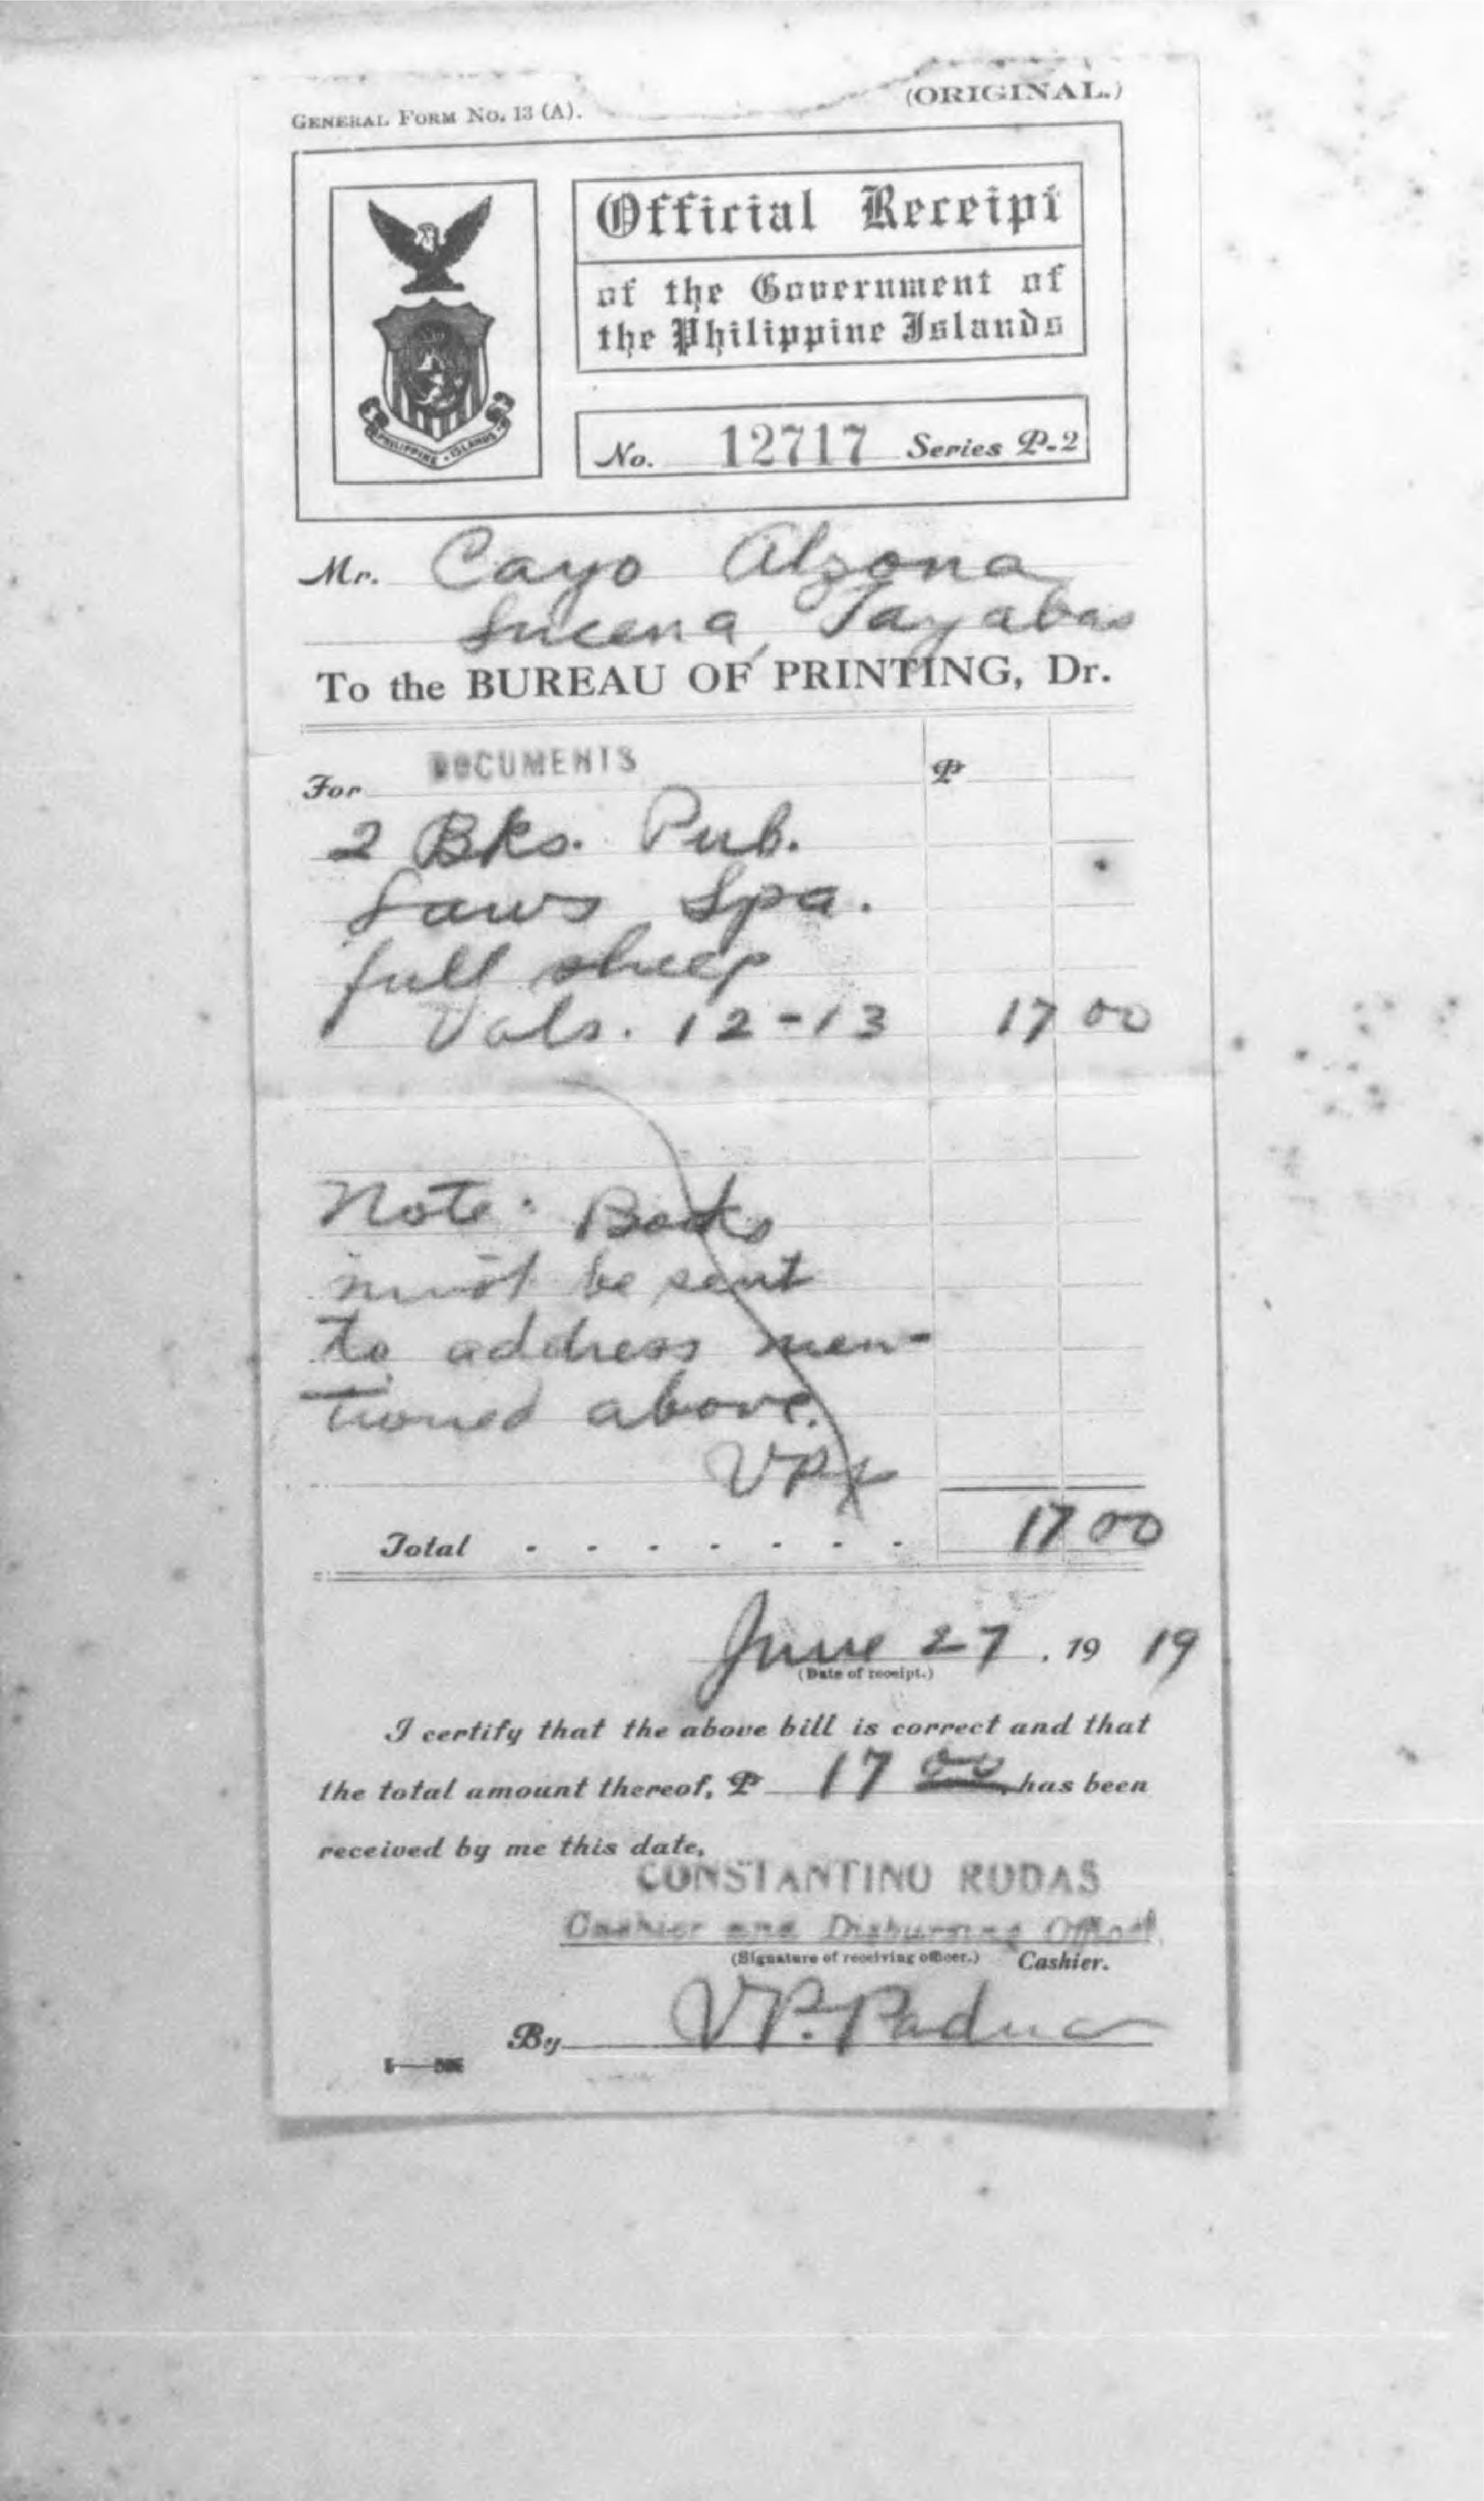 GENERAL FORM No. 13 (A).
(ORIGINAL.)
Official Receipt
of the Government of
the Philippine Islands
PHILIPPINE ISLANDS
No. 12717 Series P-2
Mr. Cayo Alzona
Lucena, Tayabas
To the BUREAU OF PRINTING, Dr.
For DOCUMENTS ₱
2 Bks. Pub.
Laws Spa.
full sheep
Vols. 12-13 17 00
Note: Books
must be sent
to address men-
tioned above.
VP
Total . . . . . . . 17 00
June 27, 19 19
(Date of receipt.)
I certify that the above bill is correct and that
the total amount thereof, ₱ 17 00 has been
received by me this date,
CONSTANTINO RUDAS
Cashier and Disbursing Officer
(Signature of receiving officer.) Cashier.
By V.P. Padua